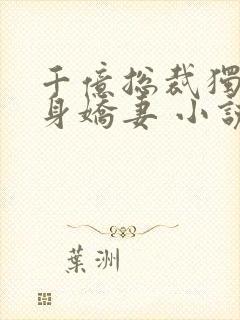 千億总裁獨
身嬌妻 小説
葉洲